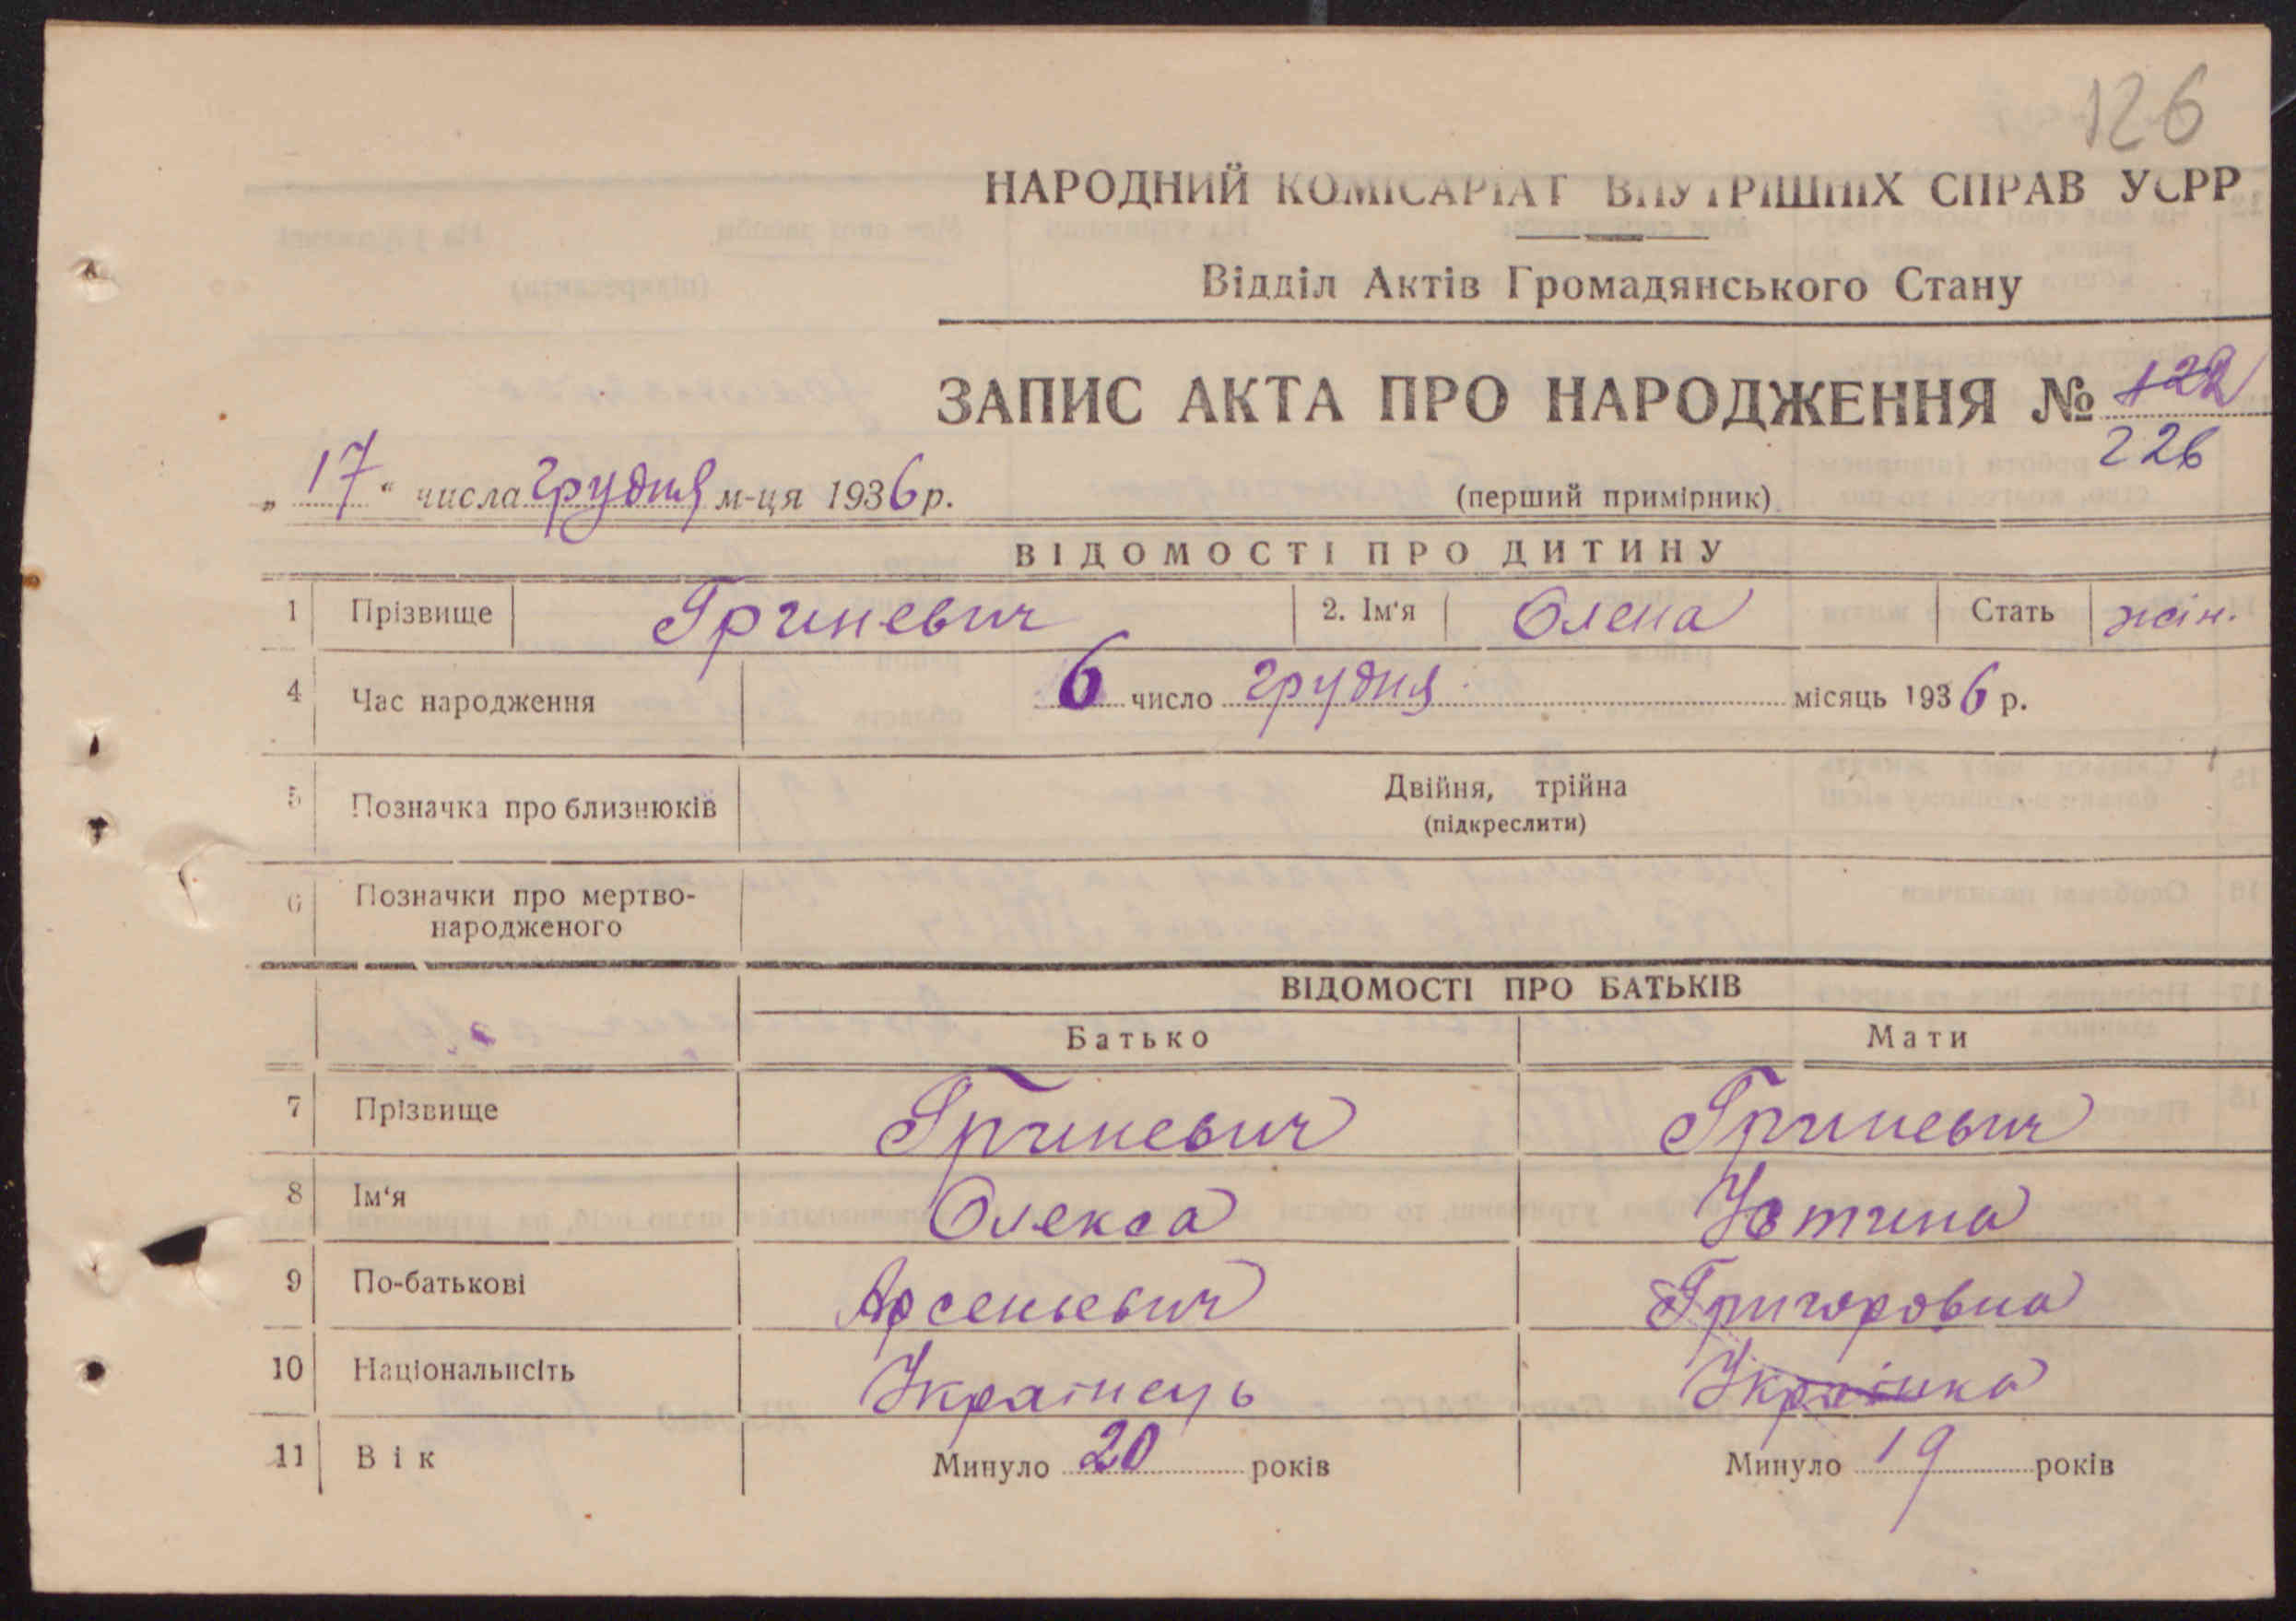 126
НАРОДНИЙ КОМІСАРІАТ ВНУТРІШНІХ СПРАВ УСРР
Відділ Актів Громадянського Стану
ЗАПИС АКТА ПРО НАРОДЖЕННЯ № 122
226
„17“ числа грудня м-ця 1936 р.
(перший примірник)
ВІДОМОСТІ ПРО ДИТИНУ
1 Прізвище Гриневич 2. Ім‘я Олена Стать жін.
4 Час народження 6 число грудня місяць 1936 р.
5 Позначка про близнюків Двійня, трійна
(підкреслити)
6 Позначки про мертво-
народженого
ВІДОМОСТІ ПРО БАТЬКІВ
Батько Мати
7 Прізвище Гриневич Гриневич
8 Ім‘я Олекса Устина
9 По-батькові Арсеньевич Григоровна
10 Національнсіть Українець Українка
11 Вік Минуло 20 років Минуло 19 років